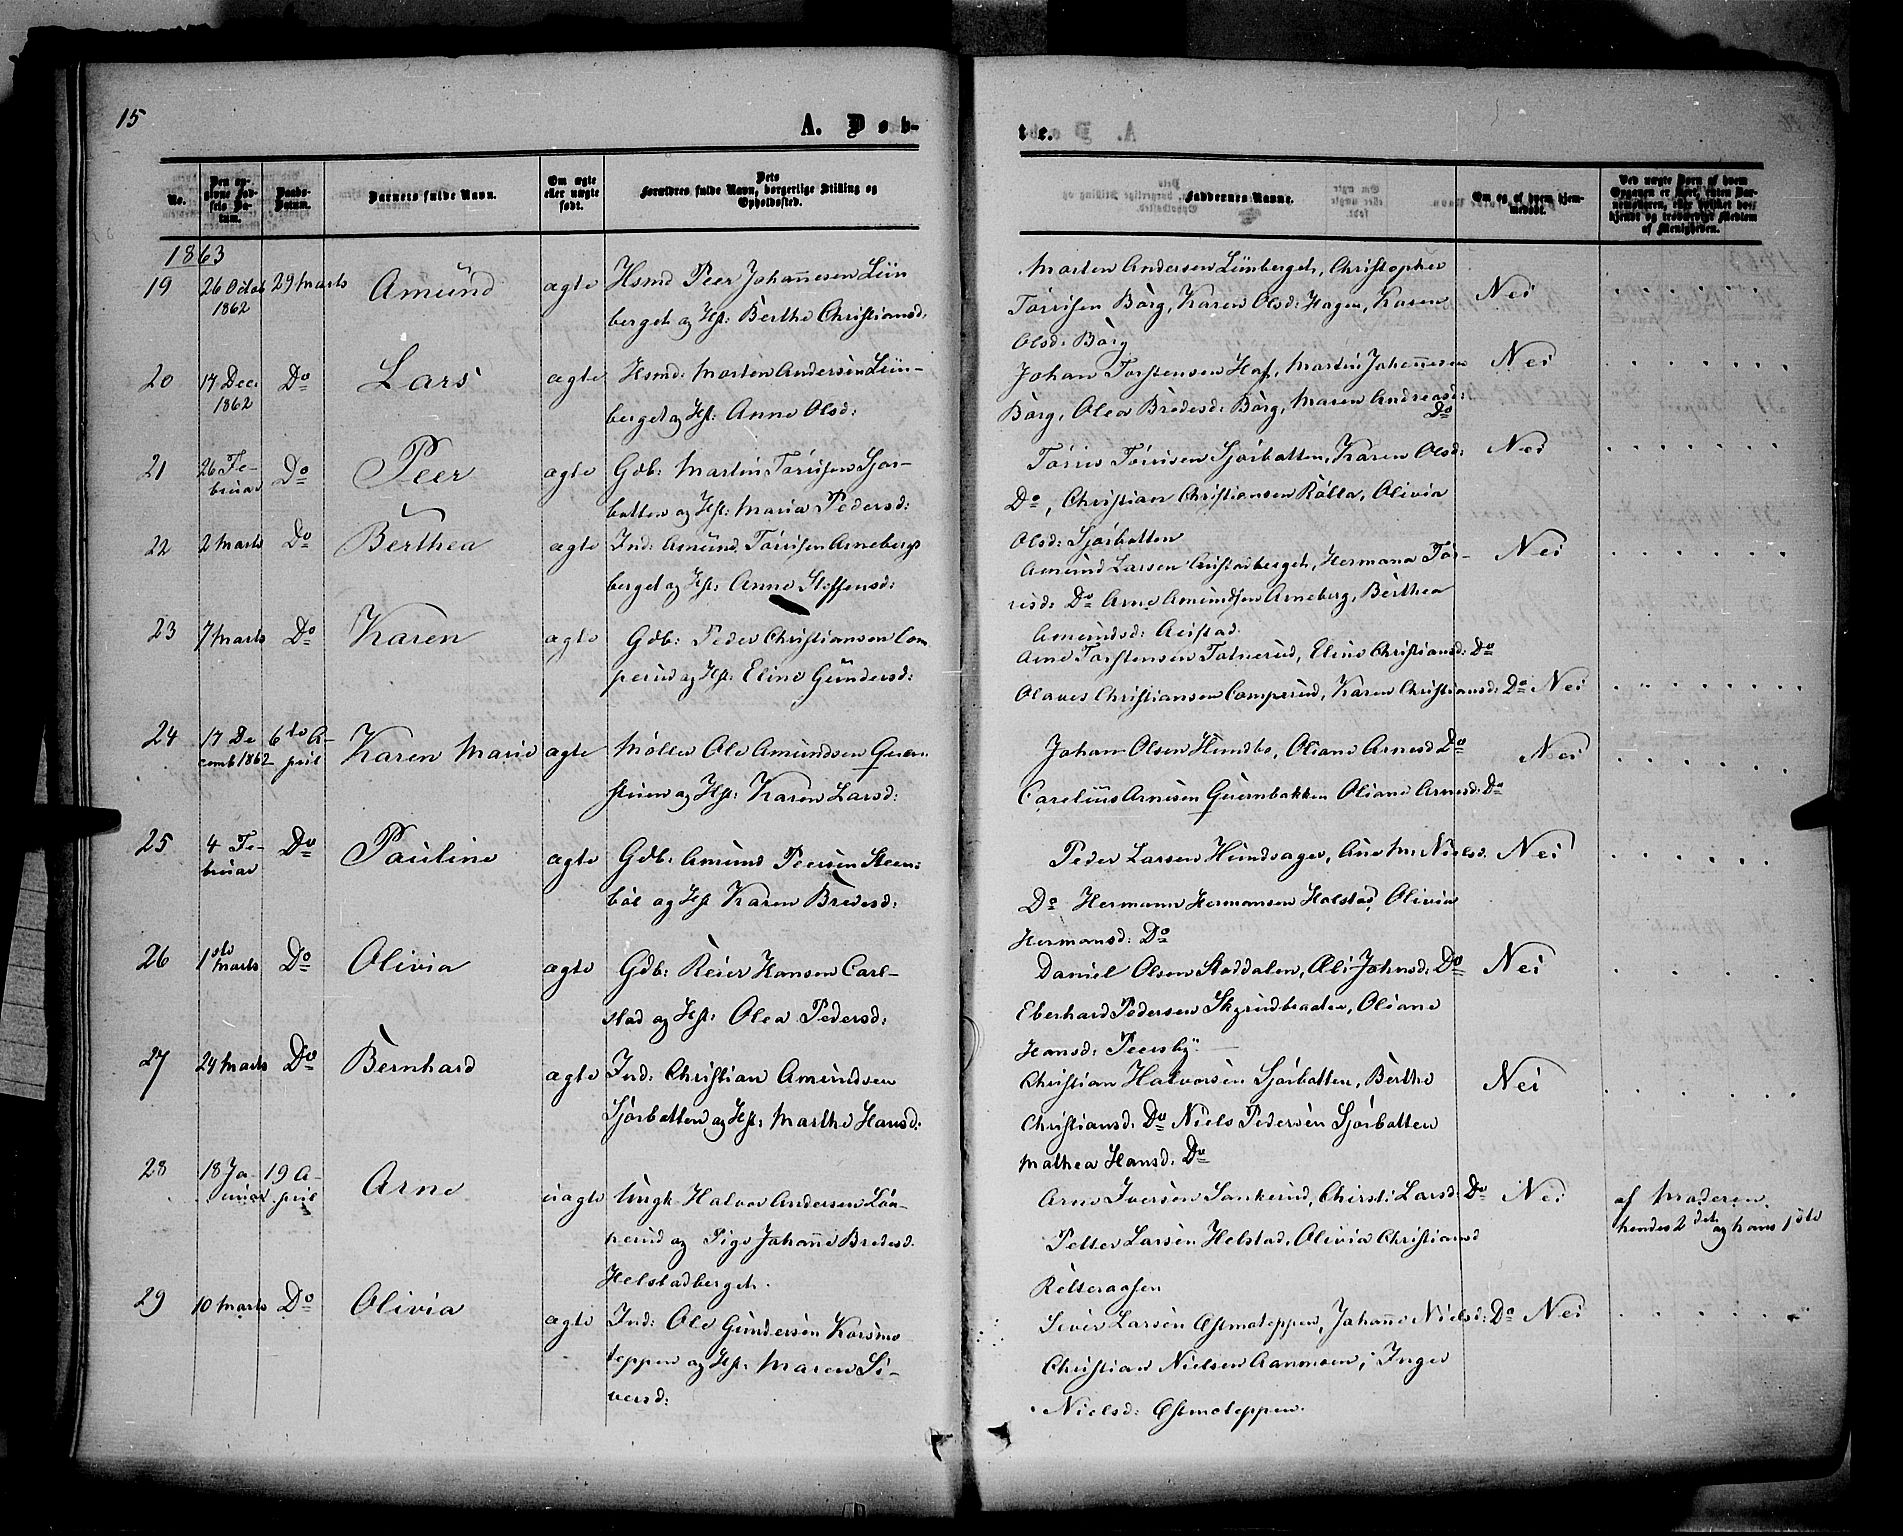 15
A. Døb-
te.
No.
Den op-
givne Fød-
sels Da-
tum.
Daabs-
Datum.
Barnets fulde Navn.
Om ægte
eller uægte
født.
Dets
Forældres fulde Navn, borgerlige Stilling og
Opholdssted.
Faddernes Navne.
Om og af hvem hjem-
medøbt.
Ved uægte Børn af hvem
Opgaven er skeet, enten Bar-
nemoderen, eller hvilket be-
kjendt og troværdigt Medlem
af Menigheden.
1863
19
26 Octob
1862
29 Marts
Amünd
ægte
Hsmd Peer Johannesen Lün
berget og Hst: Berthe Christiansd:
Morten Andersen Lünberget, Christopher
Torrisen Borg, Karen Olsd: Hagen, Karen
Olsd: Borg
Nei
20
17 Dec:
1862
Do
Lars
ægte
Hsmd: Morten Andersen Lün-
berget og Hst: Anne Olsd:
Johan Torstensen Hof, Martin Johannesen
Borg, Olea Bredesd: Borg, Maren Andreasd:
Do
Nei
21
26 Fe-
bruar
Do
Peer
ægte
Gdb: Martin Torrisen Sjor-
botten og Hst: Maria Pedersd:
Torris Torrisen Sjorbotten, Karen Olsd:
Do, Christian Christiansen Rolla, Olivia
Olsd: Sjorbotten
Nei
22
2 Marts
Do
Berthea
ægte
Ind: Amünd Torrisen Arnebergs
berget og Hst: Anne Steffensd:
Amünd Larsen Aüstadberget, Hermana Tor-
risd: Do Arne Amündsen Arneberg, Berthea
Amündsd: Aüstad.
Nei
23
7 Marts
Do
Karen
ægte
Gdb: Peder Christiansen Com
perud og Hst: Eline Gündersd:
Arne Torstensen Totnerud, Eline Christiansd: Do
Olaves Christiansen Comperud, Karen Christiansd: Do
Nei
24
17 De
cemb 1862
6te A-
pril
Karen Marie
ægte
Møller Ole Amündsen Quern
stuen og Hst: Karen Larsd:
Johan Olsen Hündbo, Oliane Arnesd Do
Carelius Arnesen Quernbakken Oliane Arnesd: Do
Nei
25
4 Fe-
bruar
Do
Pauline
ægte
Gdb: Amünd Peersen Steen-
bøl og Hst Karen Bredesd:
Peder Larsen Hündsager, Ane M: Nielsd.
Do Hermann Hermansen Holstad, Olivia
Hermansd: Do
Nei
26
1ste
Marts
Do
Olivia
ægte
Gdb: Reier Hansen Carl-
stad og Hst: Olea Pedersd:
Daniel Olsen Stoddalen, Eli Johnsd: Do
Eberhard Pedersen Skyrudbraaten, Oliane
Hansd: Peersby
Nei
27
24 Marts
Do
Bernhard
ægte
Ind: Christian Amündsen
Sjorbotten og Hst: Marthe Hansd:
Christian Halvorsen Sjorbotten, Berthe
Christiansd: Do Niels Pedersen Sjorbotten
Mathea Hansd: Do
Nei
28
18 Ja-
nuar
19 A-
pril
Arne
uægte
Ungk Halvor Andersen Løn-
nerud og Pige Johanne Bredesd.
Helstadberget.
Arne Iversen Sankerud, Chirsti Larsd: Do
Petter Larsen Helstad, Olivia Christiansd
Retteraasen
Nei
af Moderen.
hendes 2det og hans 1ste
29
10 Marts
Do
Olivia
ægte
Ind: Ole Gündersen Korsmo
teppen og Hst: Maren Si-
versd:
Siver Larsen Østmoteppen, Johanne Nielsd: Do
Christian Nielsen Aanmoen, Inger
Nielsd: Østmoteppen.
Nei